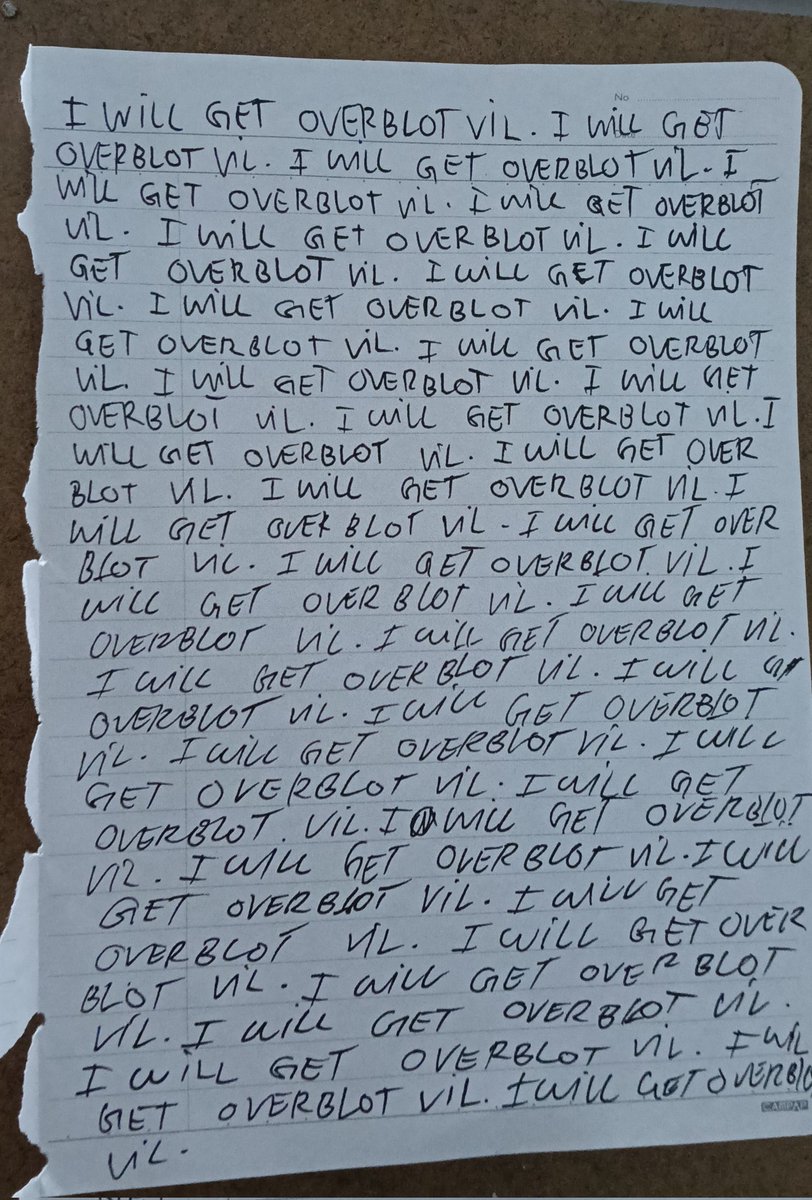 No
I WILL GET OVERBLOT VIL. I WILL GET
OVERBLOT VIL. I WILL GET OVERBLOT VIL. I
WILL GET OVERBLOT VIL. I WILL GET OVERBLOT
VIL. I WILL GET OVERBLOT VIL. I WILL
GET OVERBLOT VIL. I WILL GET OVERBLOT
VIL. I WILL GET OVERBLOT VIL. I WILL
GET OVERBLOT VIL. I WILL GET OVERBLOT
VIL. I WILL GET OVERBLOT VIL. I WILL GET
OVERBLOT VIL. I WILL GET OVERBLOT VIL. I
WILL GET OVERBLOT VIL. I WILL GET OVER
BLOT VIL. I WILL GET OVERBLOT VIL. I
WILL GET OVERBLOT VIL - I WILL GET OVER
BLOT VIL. I WILL GET OVERBLOT VIL. I
WILL GET OVERBLOT VIL. I WILL GET
OVERBLOT VIL. I WILL GET OVERBLOT VIL.
I WILL GET OVERBLOT VIL. I WILL
OVERBLOT VIL. I WILL GET OVERBLOT
VIL. I WILL GET OVERBLOT VIL. I WILL
GET OVERBLOT VIL. I WILL GET
OVERBLOT VIL. I WILL GET OVERBLOT
VIL. I WILL GET OVERBLOT VIL. I WILL
GET OVERBLOT VIL. I WILL GET
OVERBLOT VIL. I WILL GET OVER
BLOT VIL. I WILL GET OVERBLOT
VIL. I WILL GET OVERBLOT VIL.
I WILL GET OVERBLOT VIL. I WIL
GET OVERBLOT VIL. I WILL GET OVERBLO
VIL.
CAMPAP